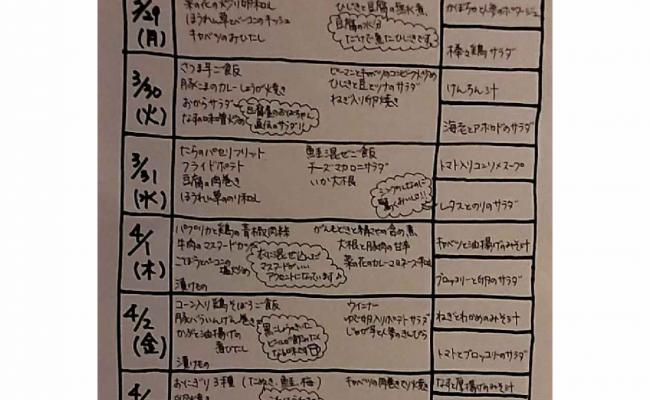 3/29
(月)
菜の花の炒り卵和え
ほうれん草とベーコンのキッシュ
キャベツのおひたし
ひじきと豆腐の塩水煮
豆腐の水分
だけで煮たひじきです。
かぼちゃと人参のポタージュ
棒々鶏サラダ
3/30
(火)
さつま芋ご飯
豚こまのカレーしょうが焼き
おからサラダ
なすの味噌炒め
豆腐屋のおばちゃん
直伝のサラダ!!
ピーマンとキャベツのコンビーフ炒め
ひじきと豆とツナのサラダ
ねぎ入り卵焼き
けんちん汁
海老とアボカドのサラダ
3/31
(水)
たらのパセリフリット
フライドポテト
豆腐の肉巻き
ほうれん草ののり和え
鮭混ぜご飯
チーズマカロニサラダ
いか大根
シンプルなのに
驚くおいしさ!!
トマト入りコンソメスープ
レタスとのりのサラダ
4/1
(木)
パプリカと鶏の青椒肉絲
牛肉のマスタードカツ
ごぼうとベーコンの
塩炒め
漬けもの
衣に混ぜ込んだ
マスタードがいい
アクセントになっています♪
大根と豚肉の甘辛
菜の花のカレーマヨネーズ和え
キャベツと油揚げのみそ汁
ブロッコリーと卵のサラダ
4/2
(金)
コーン入り鶏そぼろご飯
豚バラいんげん巻き
かぶと油揚げの
煮びたし
漬けもの
黒こしょうのきいた
ビールが飲みたく
なる味です
ウィンナー
ゆで卵入りポテトサラダ
じゃが芋と人参のきんぴら
ねぎとわかめのみそ汁
トマトとブロッコリーのサラダ
4/
おにぎり3種(たぬき、鮭、梅)
卵焼き
キャベツの肉巻きフライ
なすと厚揚げのみそ汁